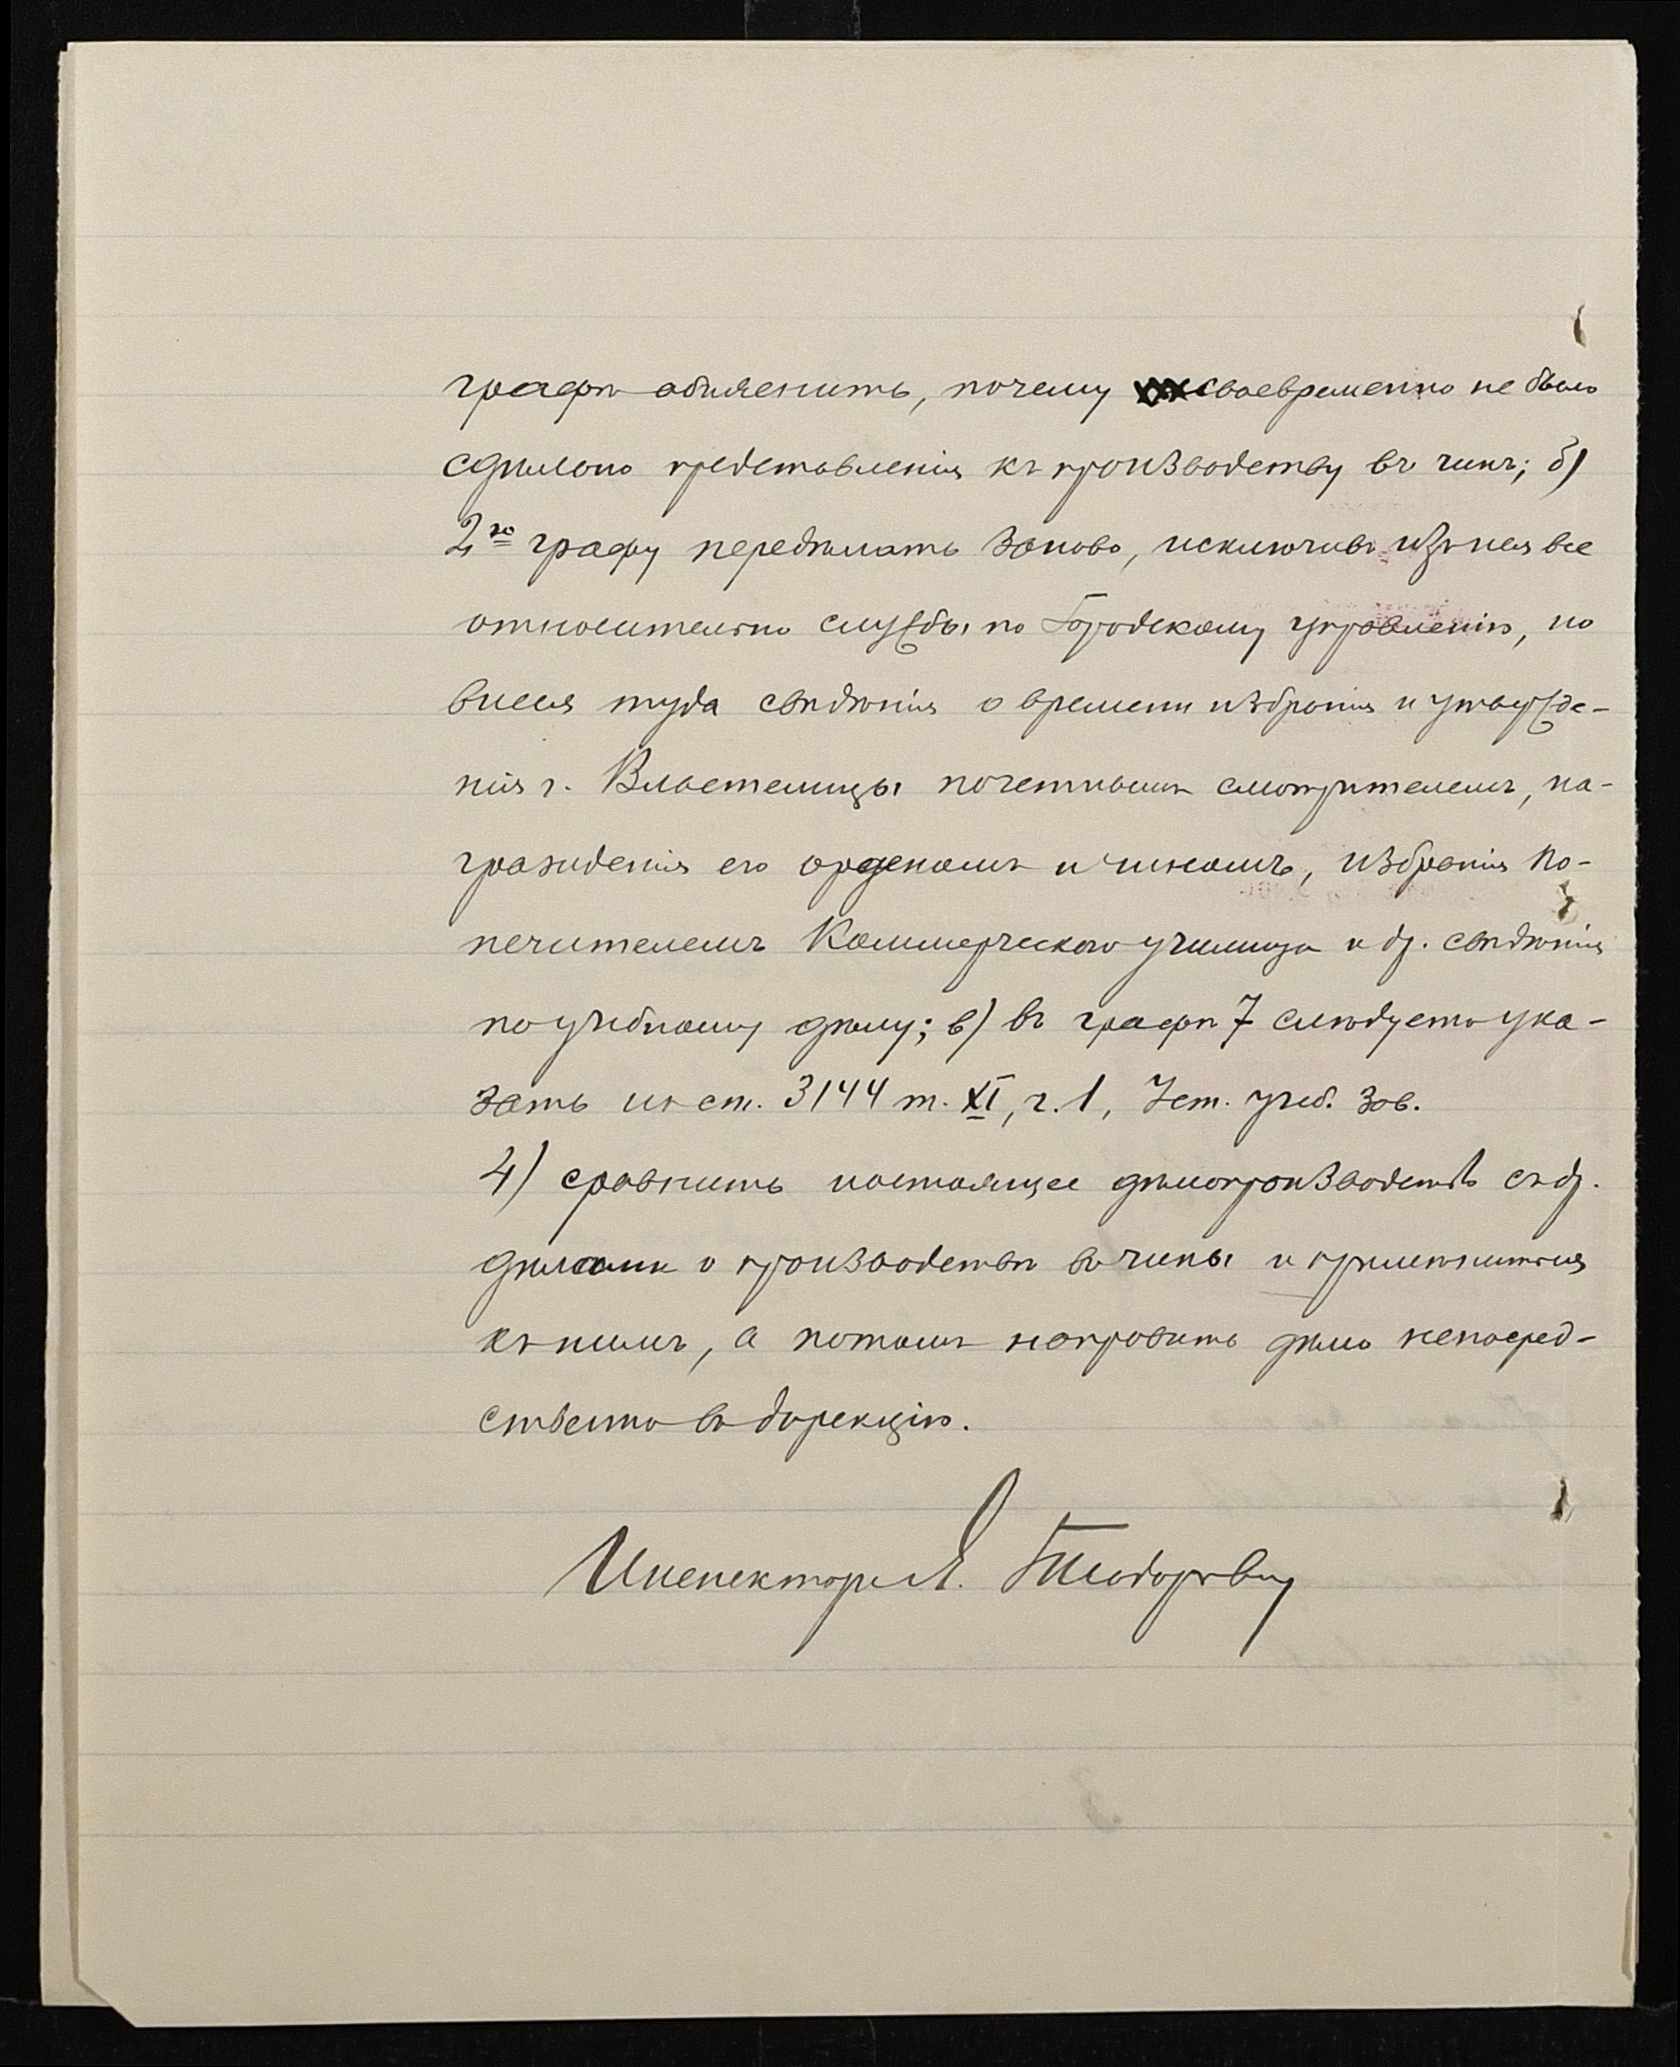 графѣ объяснить, почему своевременно не было
сдѣлано представленія къ производству въ чинъ; б)
2ую графу передѣлать заново, исключивъ изъ нея все
относительно службы по Городскому управленію, но
внеся туда свѣдѣнія о времени избранія и утвержде-
нія г. Властелицы почетнымъ смотрителемъ, на-
гражденія его орденомъ и чиномъ, избранія по-
печителемъ Коммерческаго училища и др. свѣдѣнія
по учебному дѣлу; в) въ графѣ 7 слѣдуетъ ука-
зать и ст. 3144 т. XI, ч. 1, Уст. учеб. зав.
4) сравнить настоящее дѣлопроизводство съ др.
дѣлами о производствѣ въ чины и примѣниться
къ нимъ, а потомъ направить дѣло непосред-
ственно въ дирекцію.
Инспекторъ